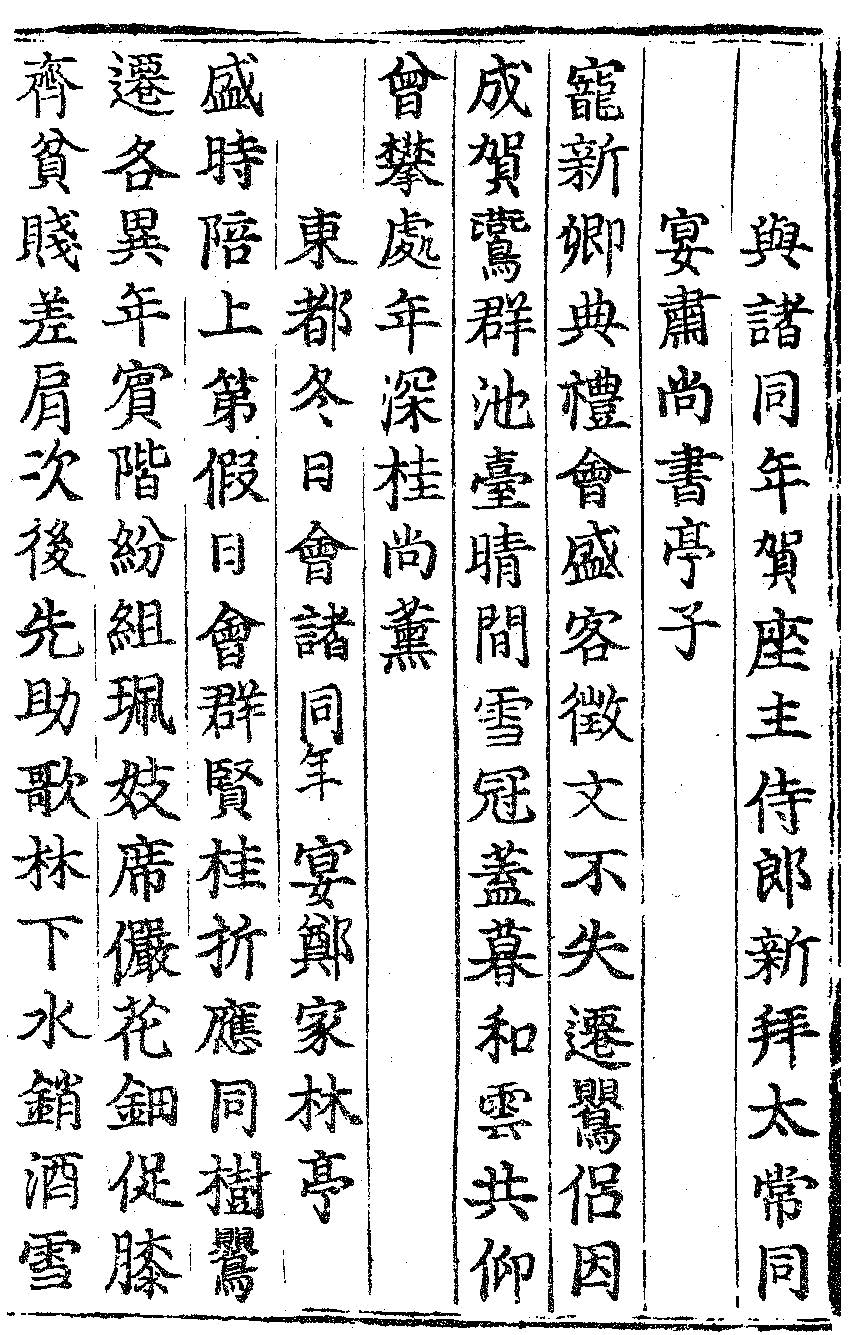 與諸同年賀座主侍郎新拜太常同
宴蕭尚書亭子
寵新卿典禮會盛客徵文不失遷鸎侶因
成賀鷰群池臺晴間雪冠蓋暮和雲共仰
曾攀處年深桂尚薰
東都冬日會諸同年宴鄭家林亭
盛時陪上第假日會群賢桂折應同樹鸎
遷各異年賓階紛組珮妓席儼花鈿促膝
齊貧賤差肩次後先助歌林下水銷酒雪